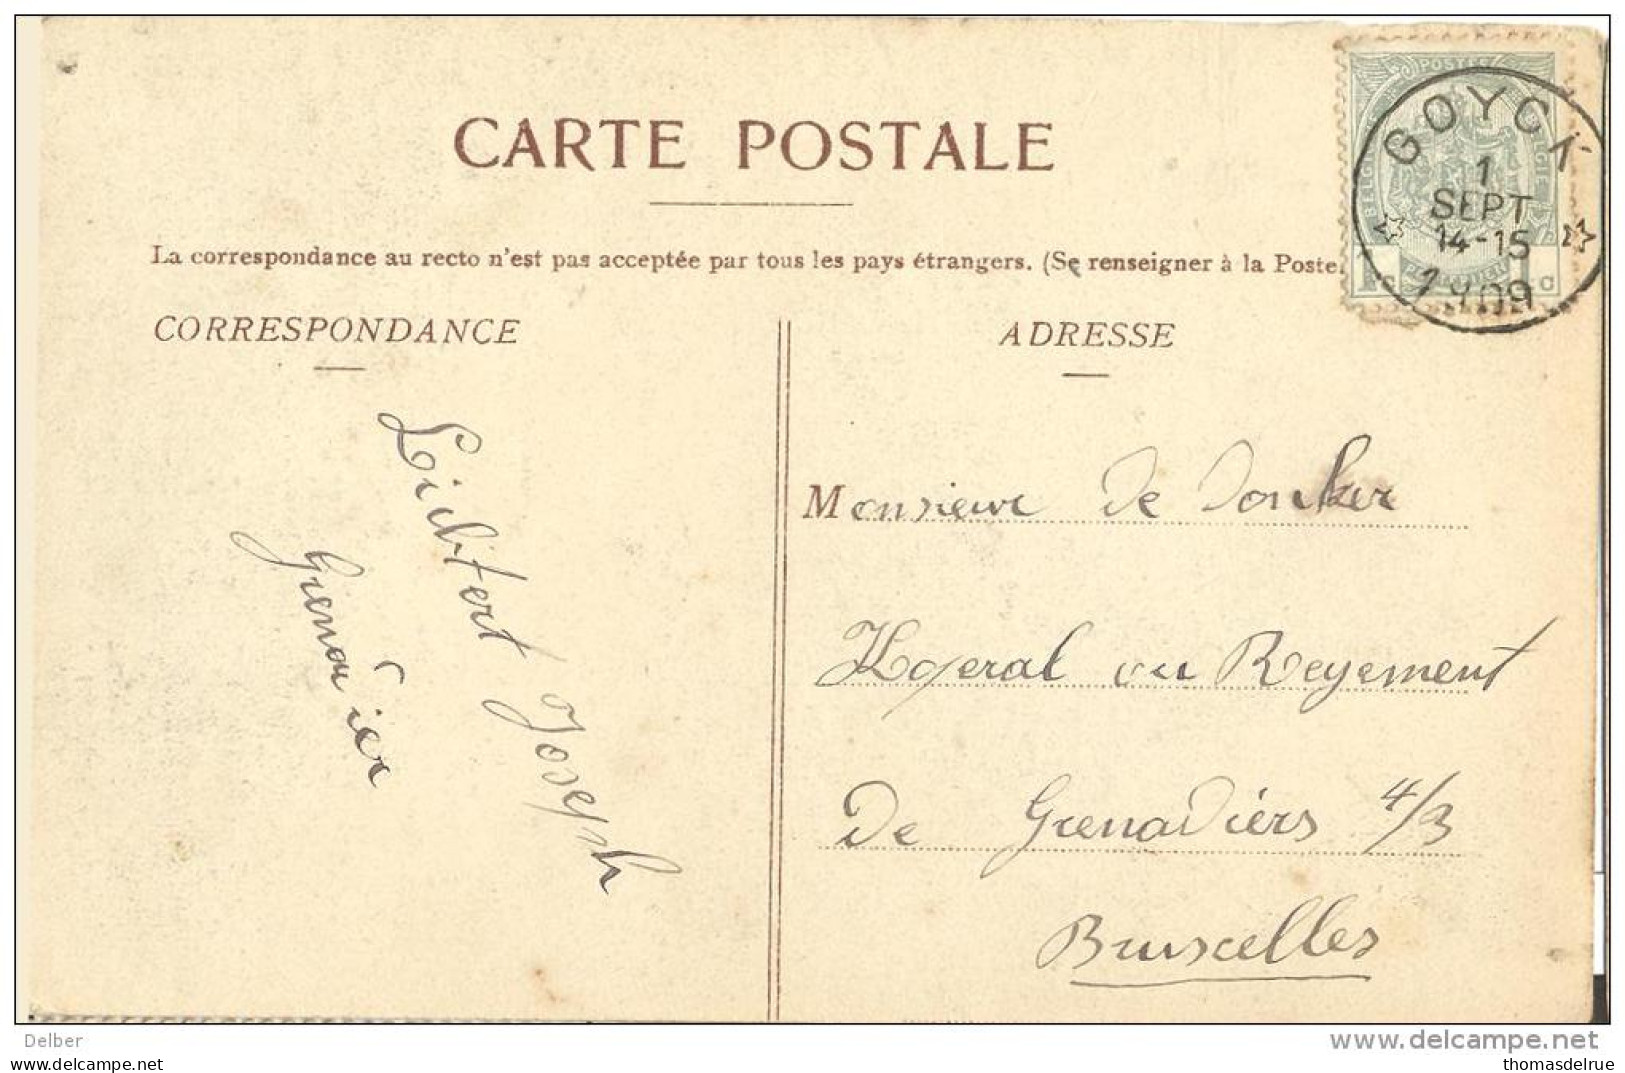 CARTE POSTALE
La correspondance au recto n'est pas acceptée par tous les pays étrangers. (Se renseigner à la Poste.
CORRESPONDANCE
ADRESSE
POSTES
GOYCK
1
SEPT
14-15
1909
1 c
1 c
Liebfert Joseph
Grenadier
Monsieur De Donker
Kaperal au Regement
De Grenadiers 4/3
Bruxelles
Delber
www.delcampe.net
thomasdelrue